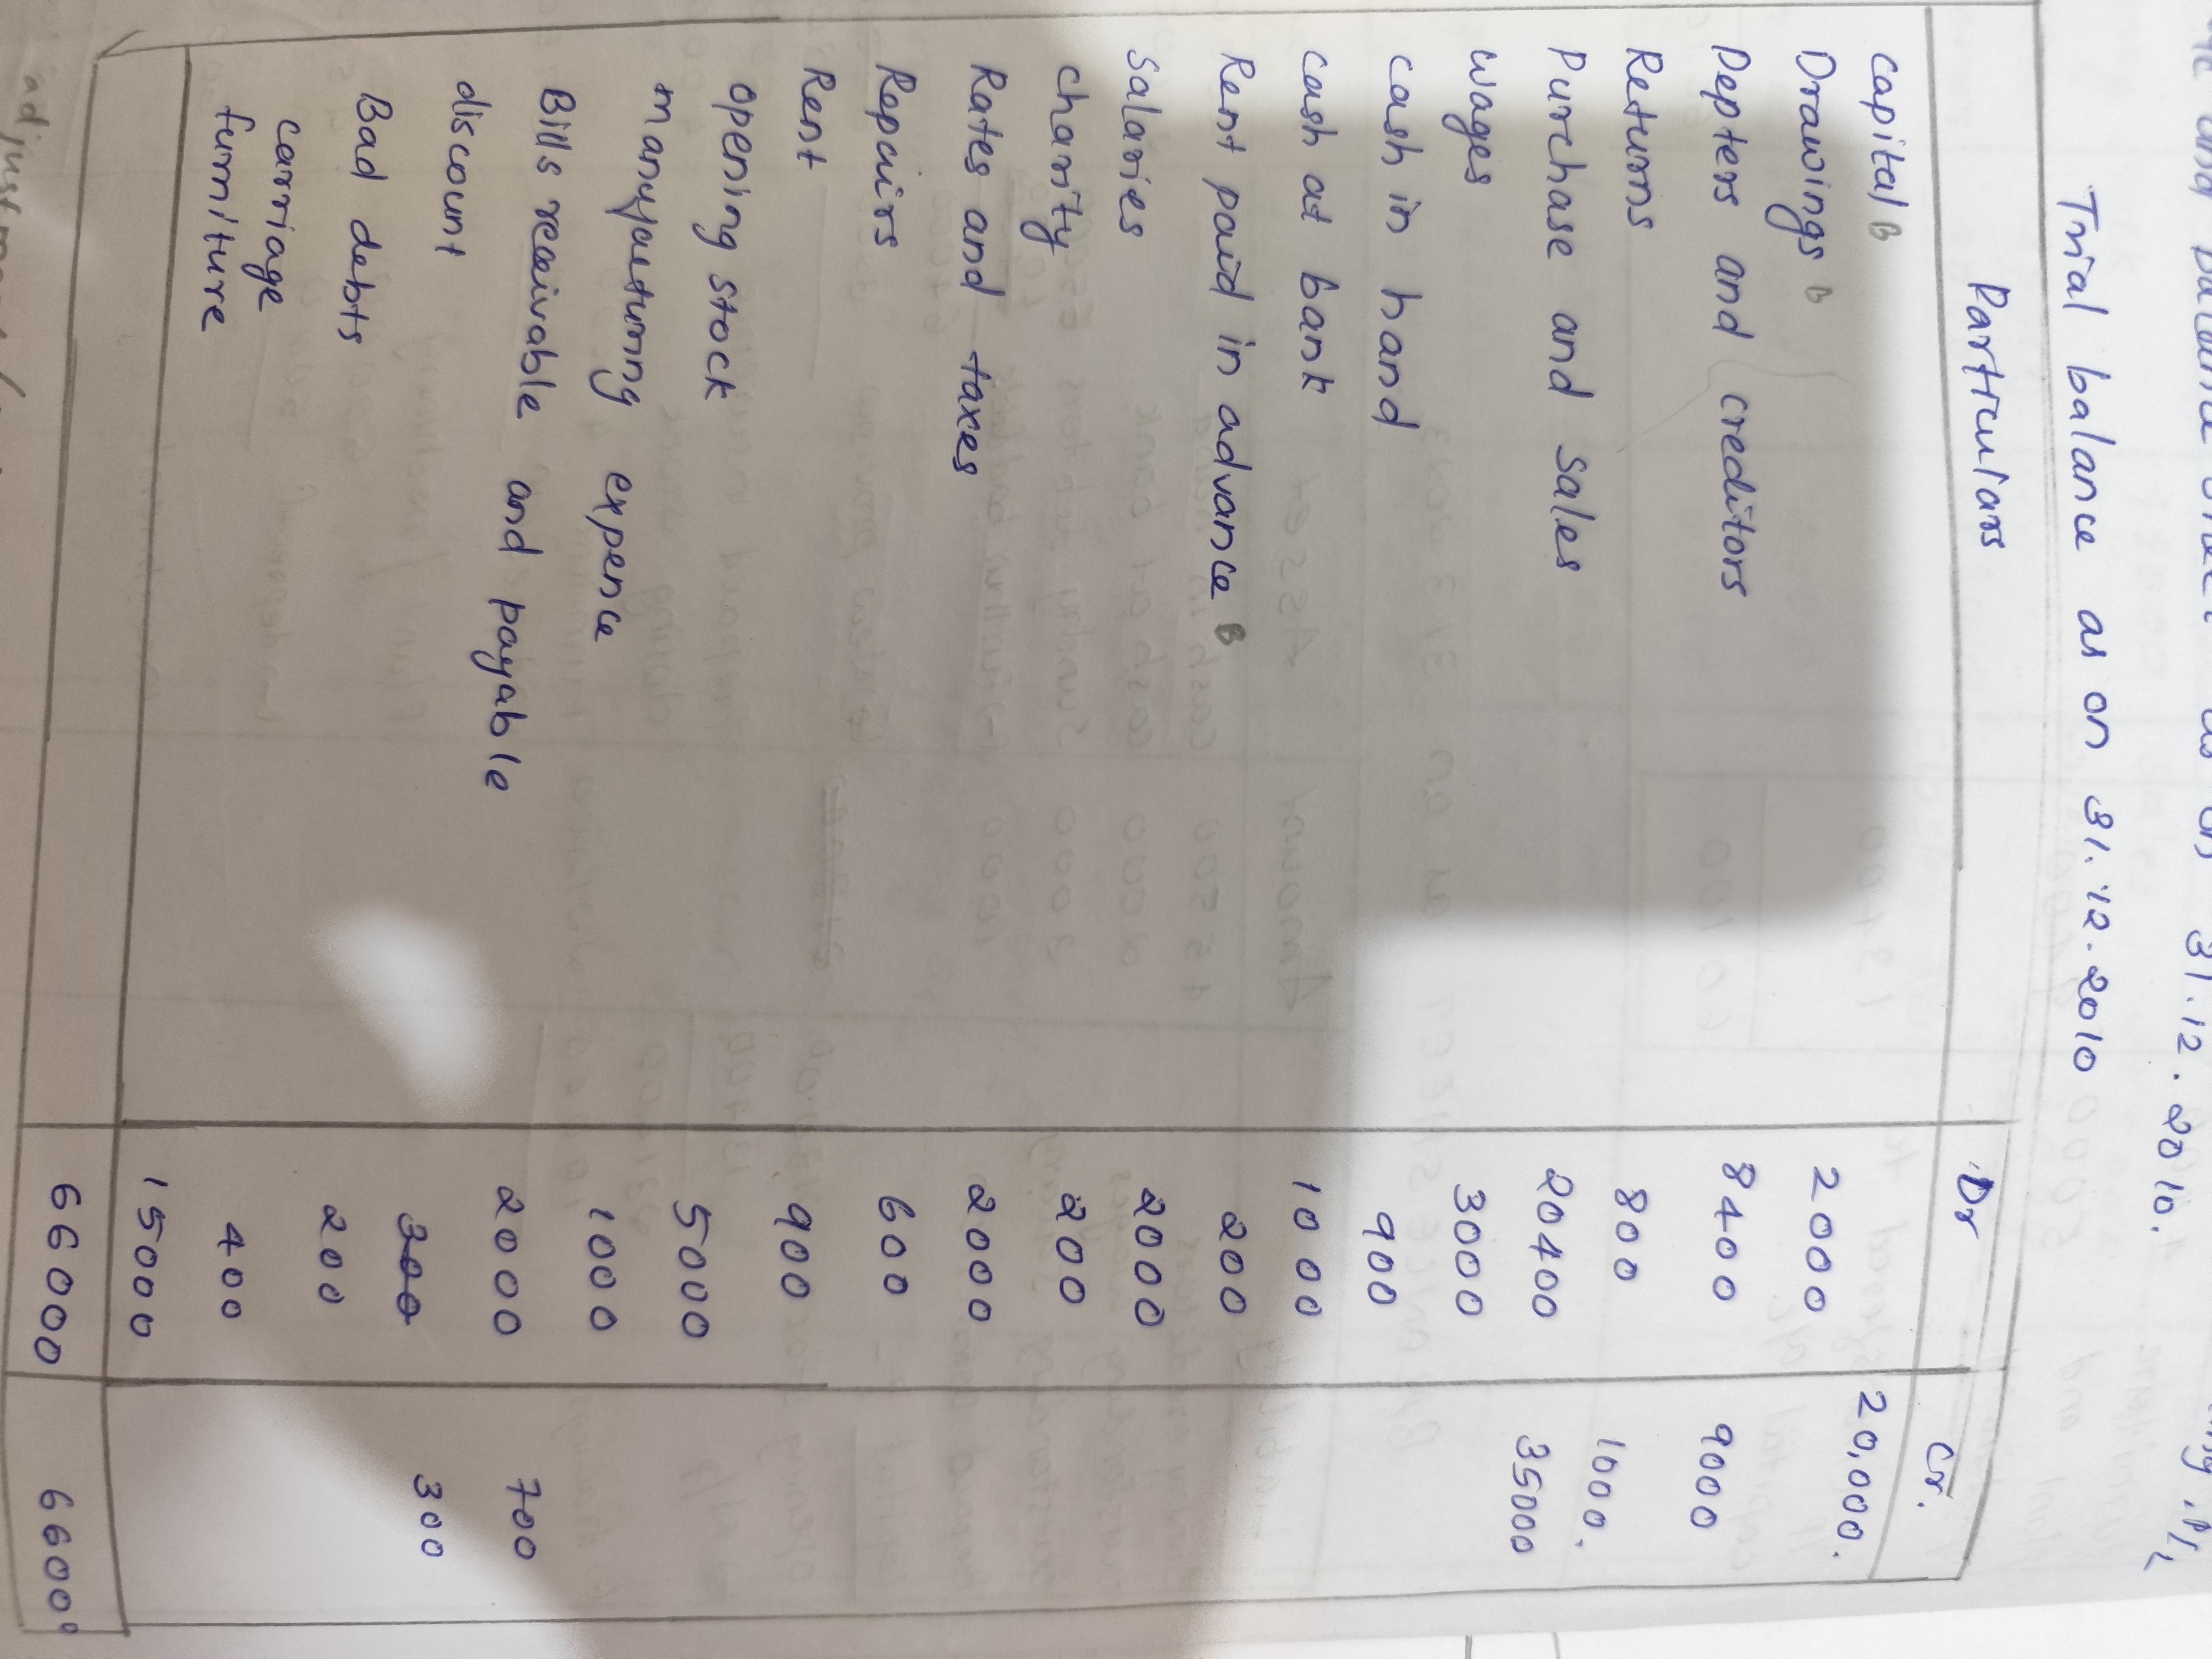 and balance sheet as on 31.12.2010.
Trial balance as on 31.12.2010
Particulars Dr Cr.
capital B 20,000.
Drawings B 2000
Depters and creditors 8400 9000
Returns 800 1000.
Purchase and Sales 20400 35000
wages 3000
cash in hand 900
cash at bank 1000
Rent paid in advance B 200
Salaries 2000
charity 200
Rates and taxes 2000
Repairs 600
Rent 900
opening stock 5000
manufacturing expence 1000
Bills receivable and payable 2000 700
discount 300 300
Bad debts 200
carriage 400
furniture 15000
66000 66000